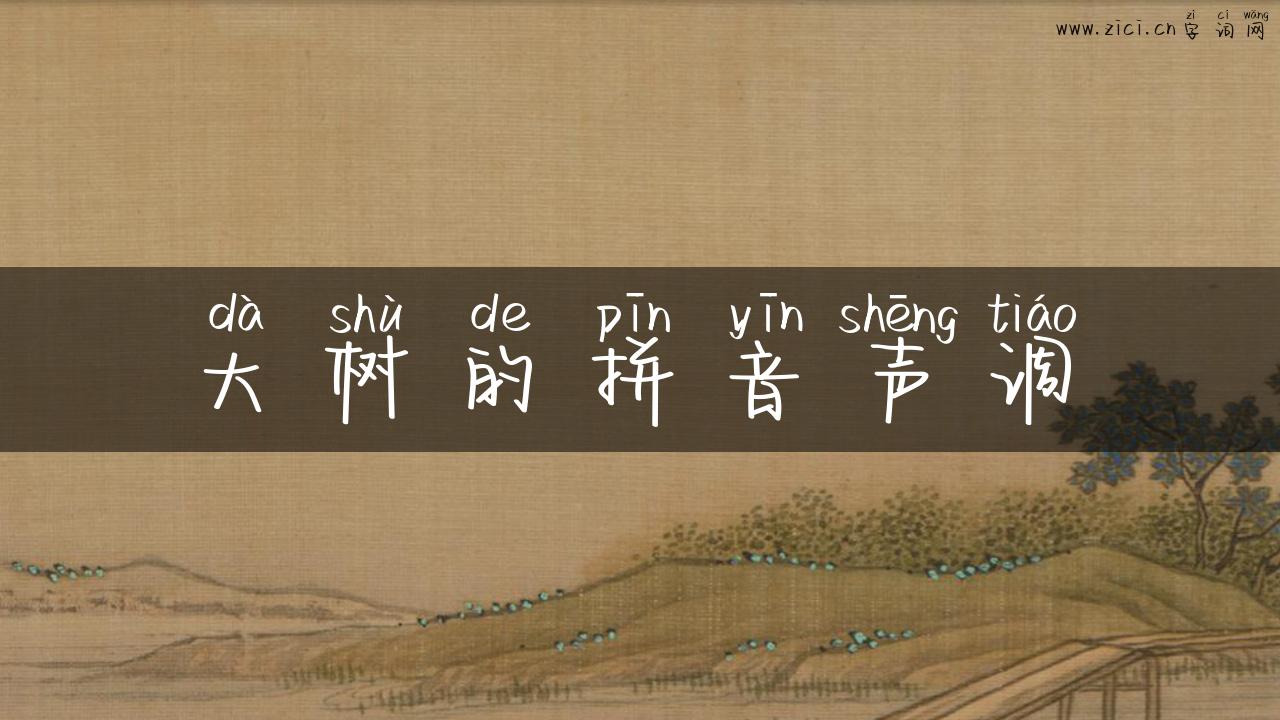 zì cí wǎng
www.zici.cn字词网
dà shù de pīn yīn shēng tiáo
大树的拼音声调